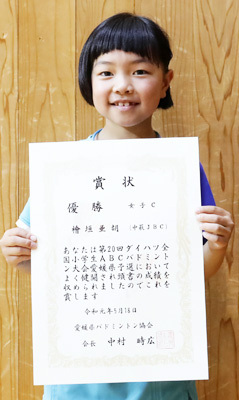 賞状
優勝 女子C
檜垣亜胡 (中萩JBC)
あなたは第20回ダイハツ全
国小学生ABCバドミント
ン大会愛媛県予選において
よく健闘され頭書の成績を
収められましたのでこれを
賞します
令和元年5月18日
愛媛県バドミントン協会
会長 中村時広